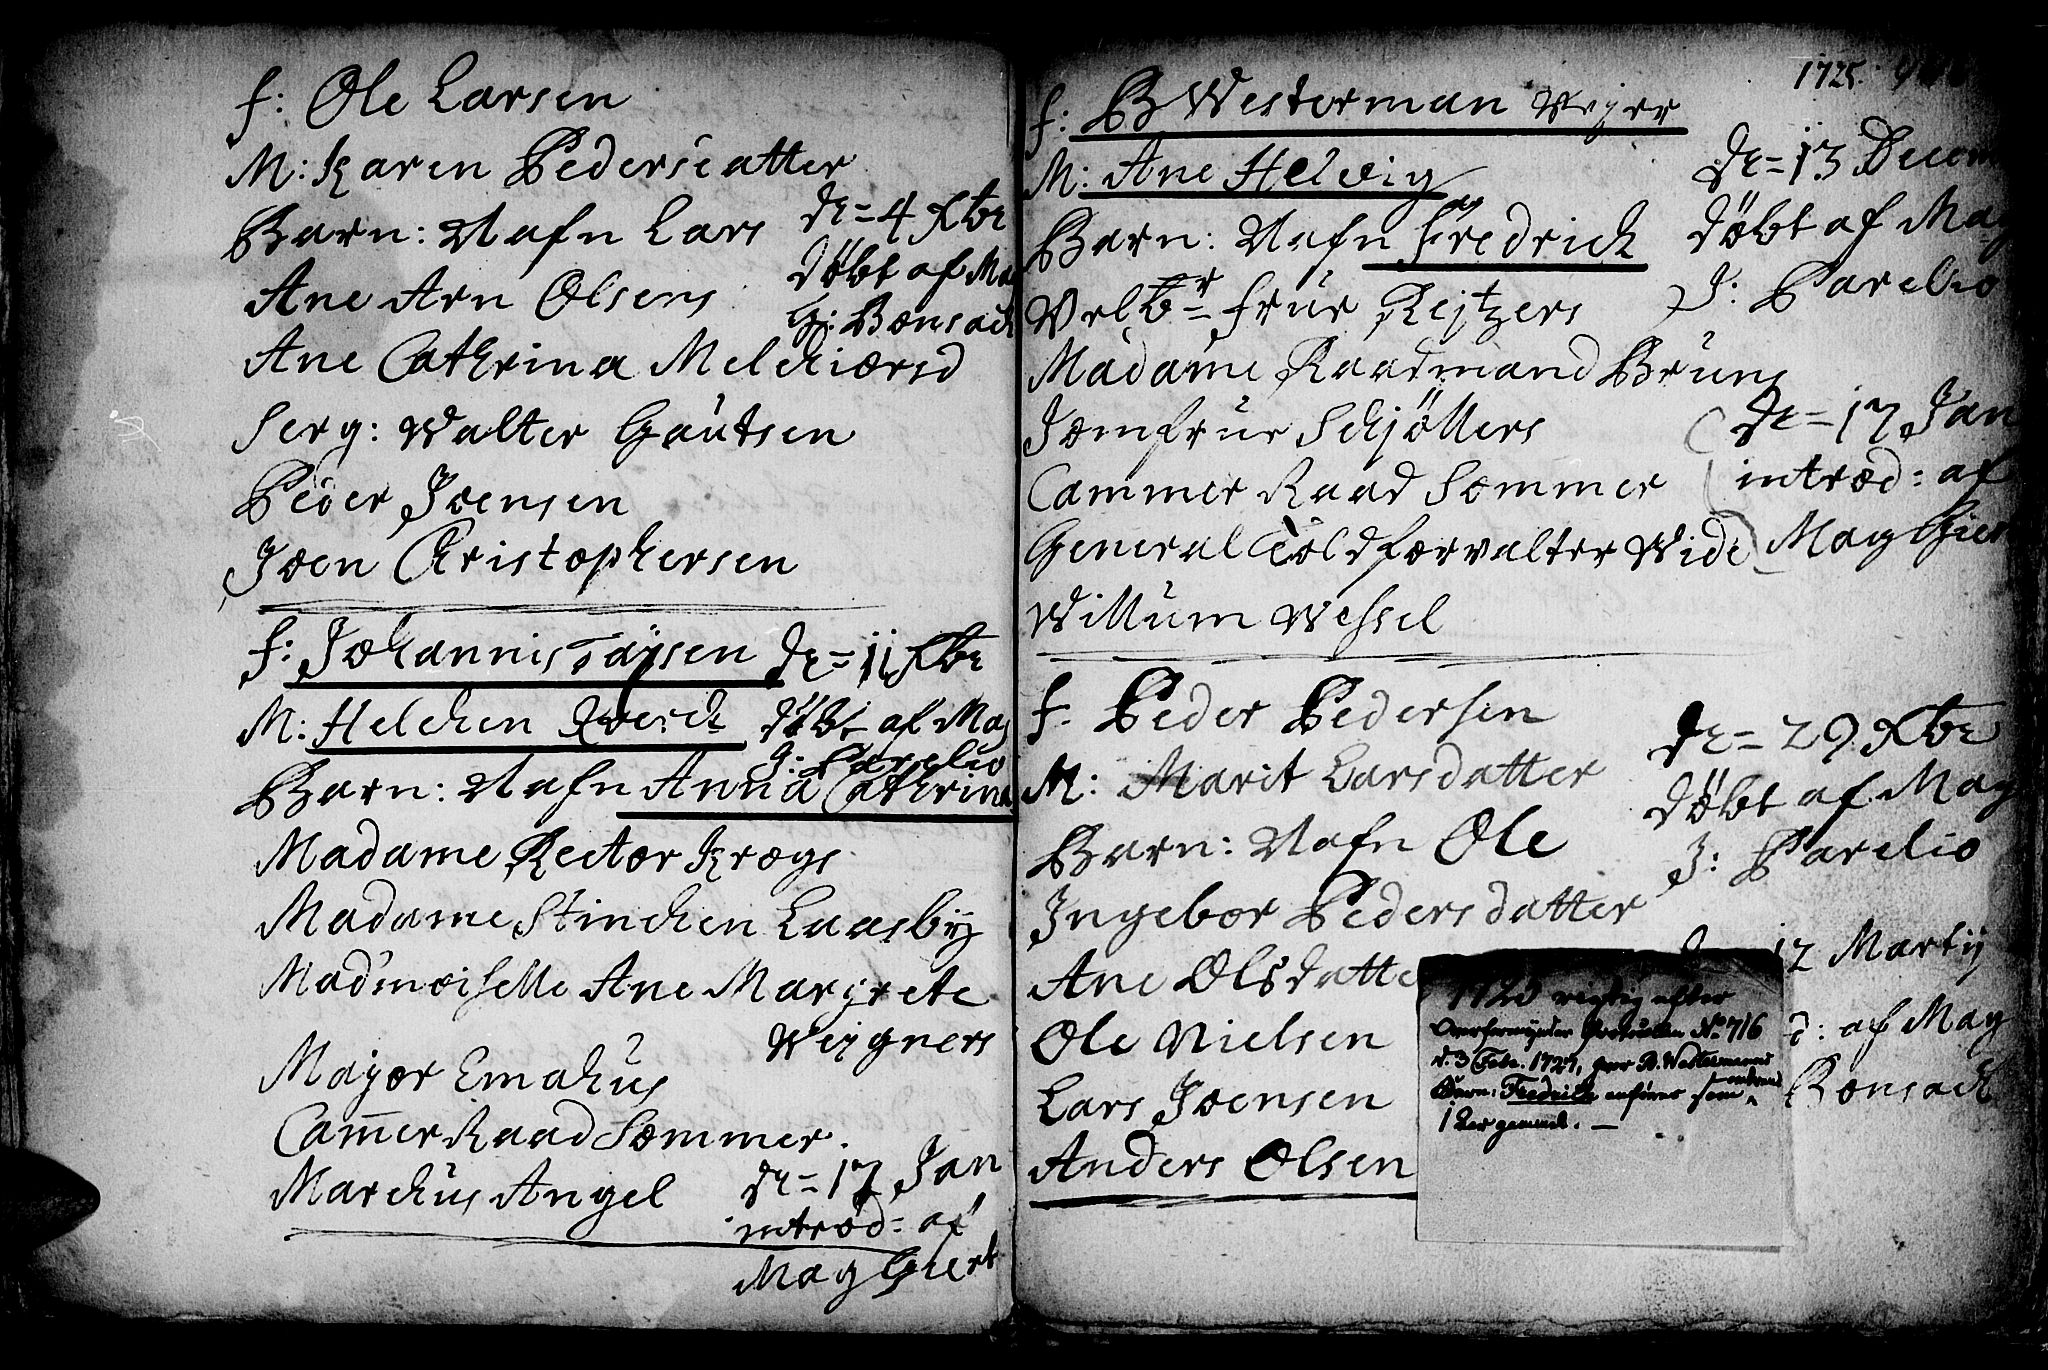 f: Ole Larsen
M: Karen Pedersdatter
Barn: Nafn Lars
Ane Arn Olsens
Ane Cathrina Melchiorsd
Serg: Walter Gautsen
Peder Joensen
Joen Christophersen
de = 4 Xbr
döbt af Mag
G: Bonsach
f: Johannis Taysen
M: Helchen
Barn: Nafn Anna Cathrina
Madame Rector Krogs
Madame Stinchen Laasbÿ
Mad'moiselle Ane Margrete
Weygners
Major Emahus
Cam̄er Raad Sommer.
Marchus Angel
de = 11 Xbr
döbt af Mag
J: Parelio
de = 17 Jan
introd: af
Mag Giert
1725.
f: B Westerman Weyer
M: Ane Helvig
Barn: Nafn Fredrich
Velbr Frur Rejtzers
Madame Raadmand Bruns
Jomfrur Schjöllers
Cammer Raad Sommer
General Toldforvalter Wide
Willum Wessel
de = 13 Decem
döbt af Mag
J: Parelio
de = 17 Jan
introd: af
Mag Giert
f. Peder Pedersen
M: Marit Larsdatter
Barn: Nafn Ole
Ingebor Pedersdatter
Ane Olsdatte
Ole Nielsen
Lars Joensen
Anders Olsen
de = 29 Xbr
döbt af Mag
J: Parelio
12 Martij
d: af Mag
Bonsach
1725 rigtig efter
Overformynder Protocollen No 716
d. 3 Febr. 1727, hvor B. Westermanns
Barn: Fredrich anföres som